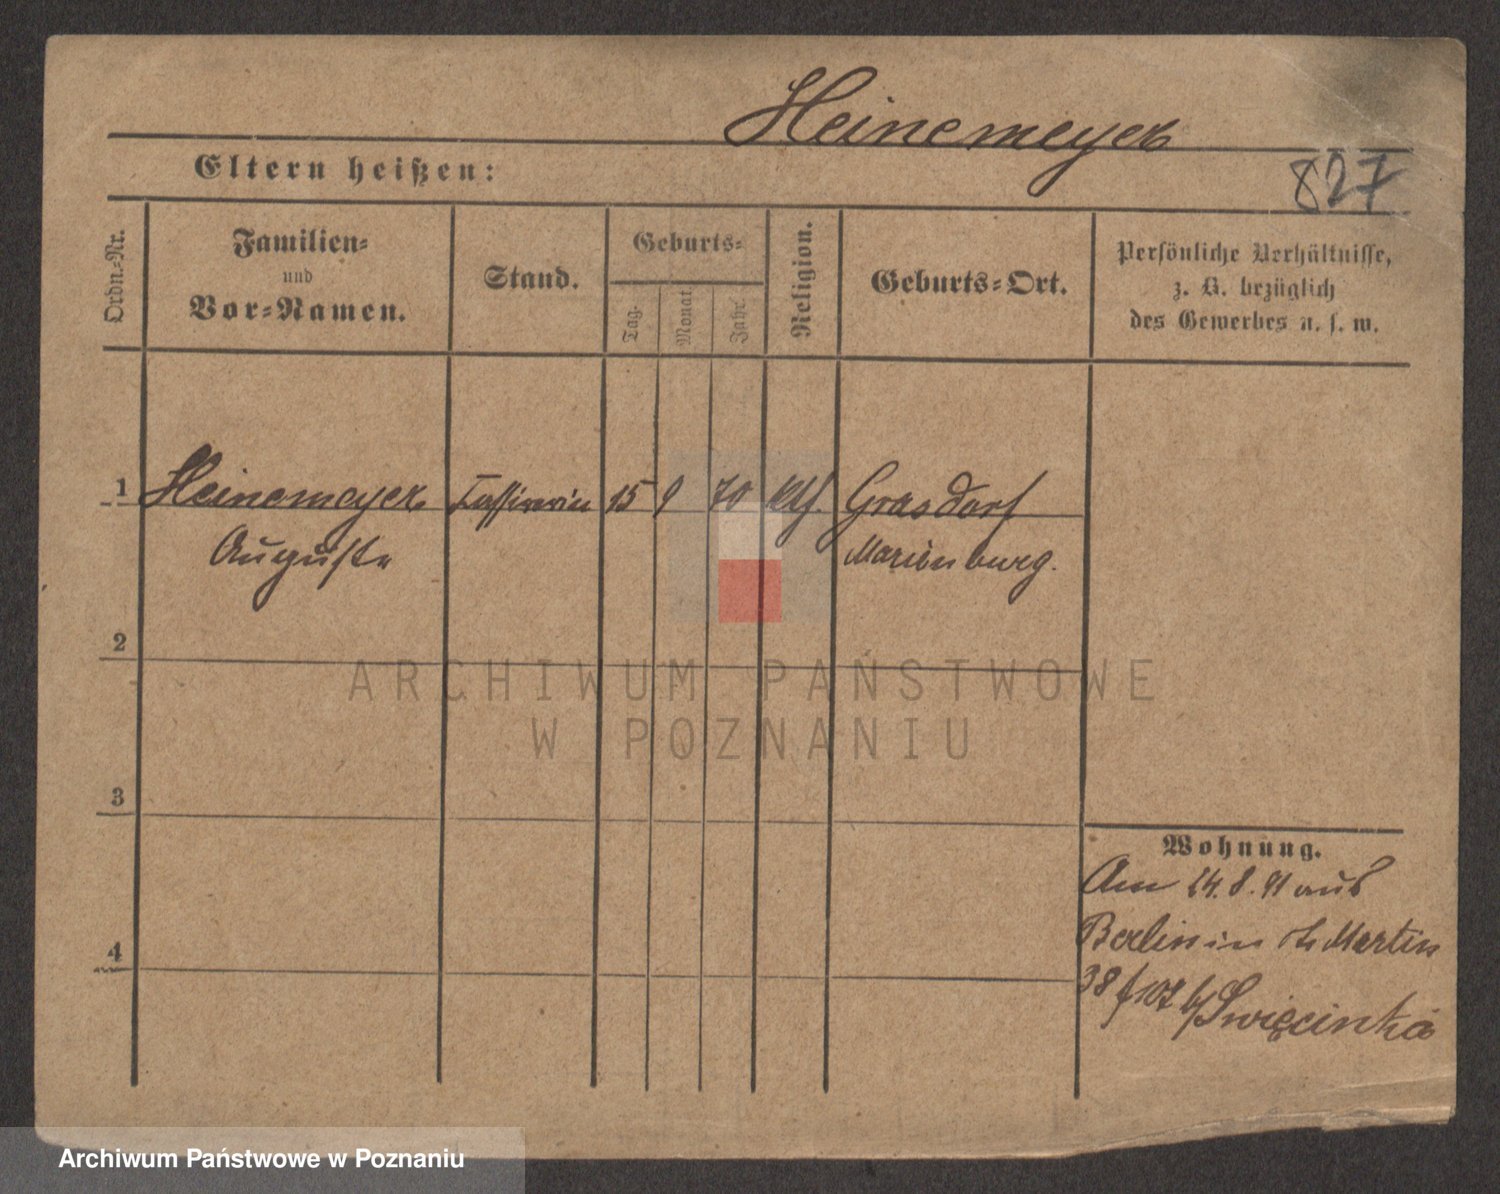 Heinemeyer
Eltern heißen:
827
Ordn.-Nr.
Familien-
und
Vor-Namen.
Stand.
Geburts-
Tag.
Monat
Jahr.
Religion.
Geburts-Ort.
Persönliche Verhältnisse,
z. B. bezüglich
des Gewerbes u. s. w.
1
Heinemeyer Kassirerin 15 9 70 Grasdorf
Auguste Marienburg.
2
ARCHIWUM PAŃSTWOWE
W POZNANIU
3
Wohnung.
Am 14.8.91 aus
Berlin in St Martin
38 b/ Święcinka
4
Archiwum Państwowe w Poznaniu